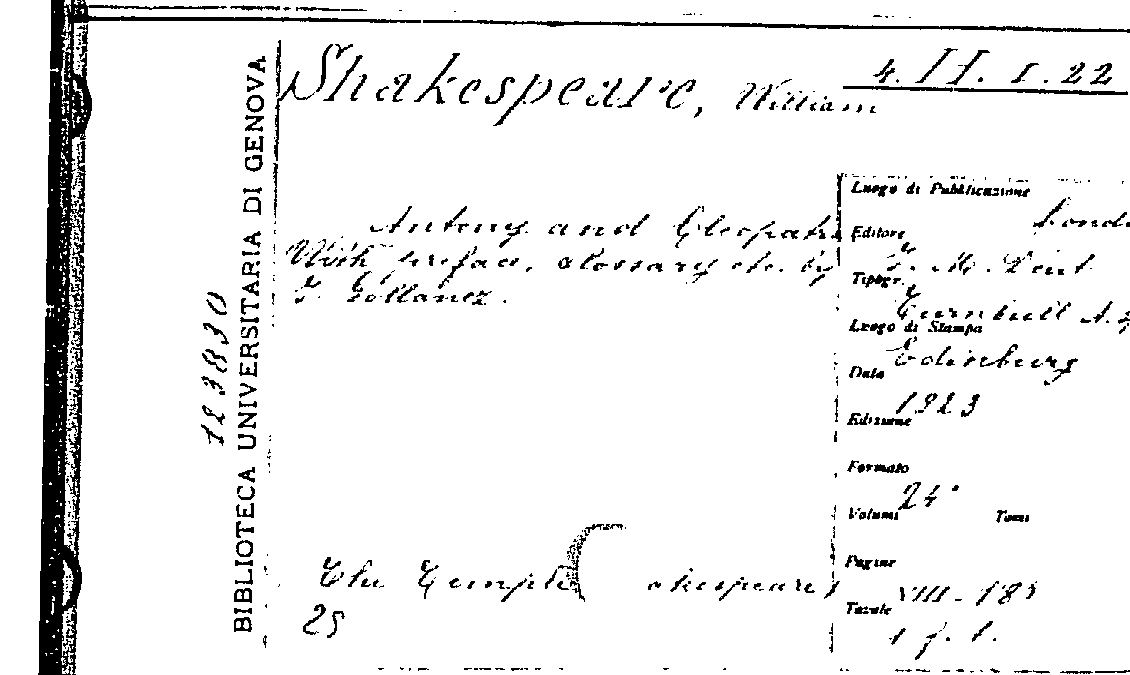 Shakespeare, William
4. II. I. 22
BIBLIOTECA UNIVERSITARIA DI GENOVA
123830
Antony and Cleopatra
With preface, glossary etc. by
I. Gollancz.
The Temple Shakespeare
25
Luogo di Pubblicazione
Londo
Editore
J. M. Dent
Tipogr.
Turnbull A.
Luogo di Stampa
Edinburg
Data
1923
Edizione
Formato
24°
Volumi Tomi
Pagine
VIII - 185
Tavole
1 f. t.